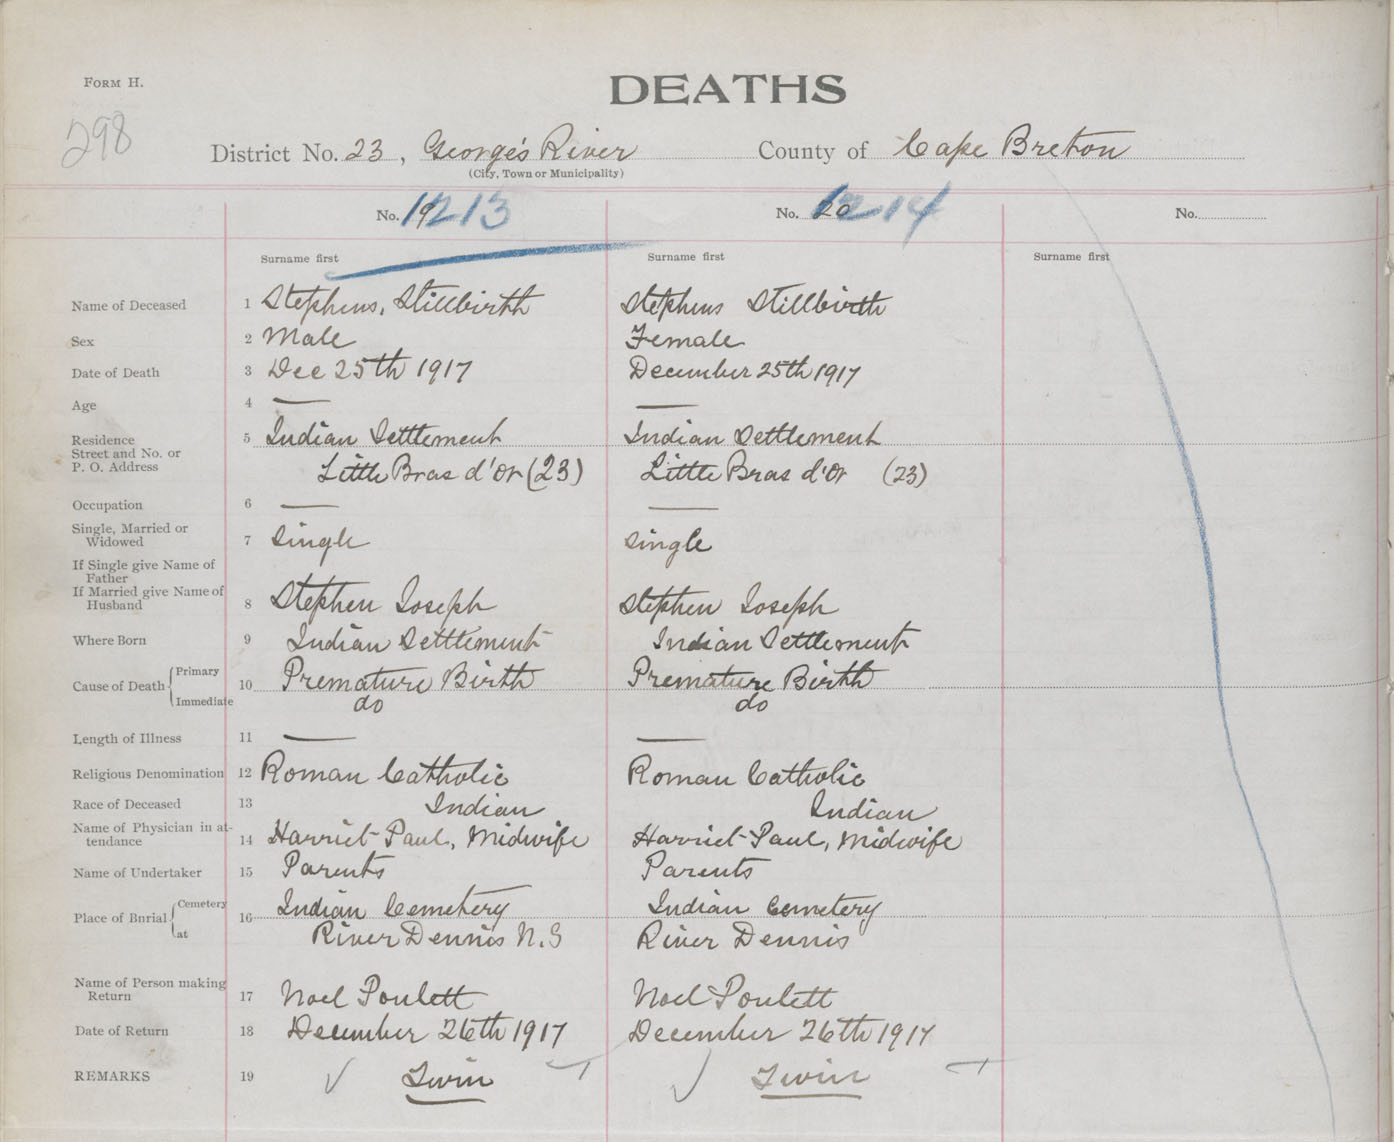 FORM H.
DEATHS
298
District No. 23, George's River County of Cape Breton
(City, Town or Municipality)
No. 19 1213 No. 20 1214 No.
Surname first Surname first Surname first
Name of Deceased 1 Stephens, Stillbirth Stephens Stillbirth
Sex 2 Male Female
Date of Death 3 Dec 25th 1917 December 25th 1917
Age 4 — —
Residence 5 Indian Settlement Indian Settlement
Street and No. or
P. O. Address Little Bras d'Or (23) Little Bras d'Or (23)
Occupation 6 — —
Single, Married or
Widowed 7 Single Single
If Single give Name of
Father
If Married give Name of
Husband 8 Stephen Joseph Stephen Joseph
Where Born 9 Indian Settlement Indian Settlement
Cause of Death { Primary 10 Premature Birth Premature Birth
Immediate do do
Length of Illness 11 — —
Religious Denomination 12 Roman Catholic Roman Catholic
Race of Deceased 13 Indian Indian
Name of Physician in at-
tendance 14 Harriet Paul, Midwife Harriet Paul, Midwife
Name of Undertaker 15 Parents Parents
Place of Burial { Cemetery 16 Indian Cemetery Indian Cemetery
at River Dennis N.S River Dennis
Name of Person making
Return 17 Noel Poulett Noel Poulett
Date of Return 18 December 26th 1917 December 26th 1917
REMARKS 19 ✓ Twin ✓ Twin